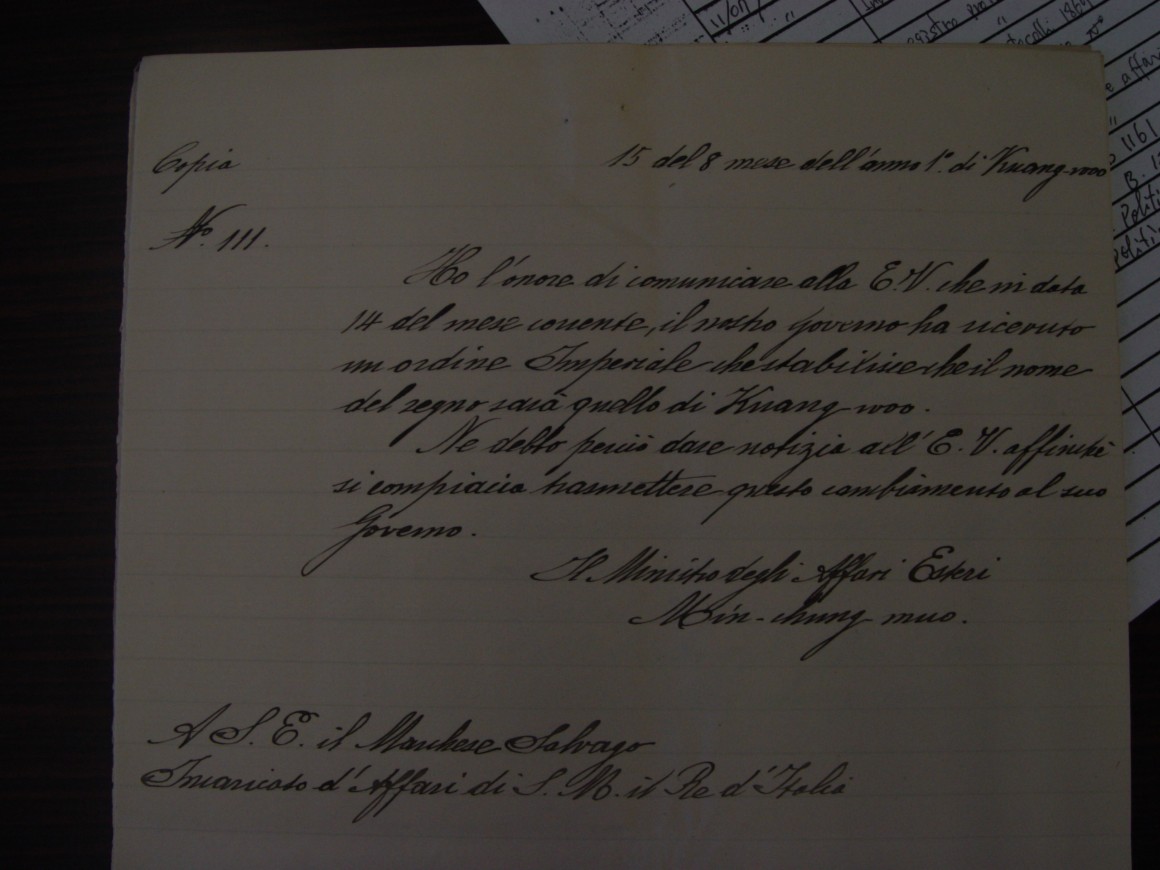 Copia
15 del 8 mese dell'anno 1º di Kuang-woo
Nº 111.
Ho l'onore di comunicare alla E. V. che in data
14 del mese corrente, il nostro governo ha ricevuto
un ordine Imperiale che stabilisce che il nome
del regno sarà quello di Kuang-woo.
Ne debbo perciò dare notizia all' E. V. affinchè
si compiaccia trasmettere questo cambiamento al suo
Governo.
Il Ministro degli Affari Esteri
Min-chung muo.
A S. E. il Marchese Salvago
Incaricato d'Affari di S. M. il Re d'Italia
11/07/
1161
B.
Politi
politi